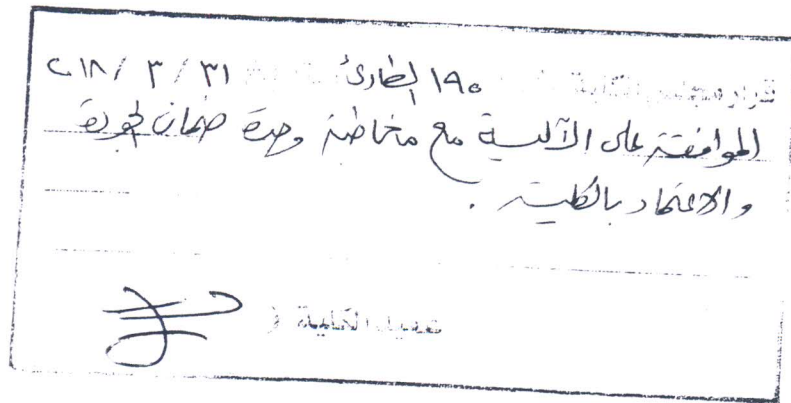 قرار مجلس الكلية ١٩٥ الطارئ ٣١ / ٣ / ٢٠١٨
الموافقة على الآلية مع مخاطبة وحدة ضمان الجودة
والاعتماد بالكلية .
عميد الكلية